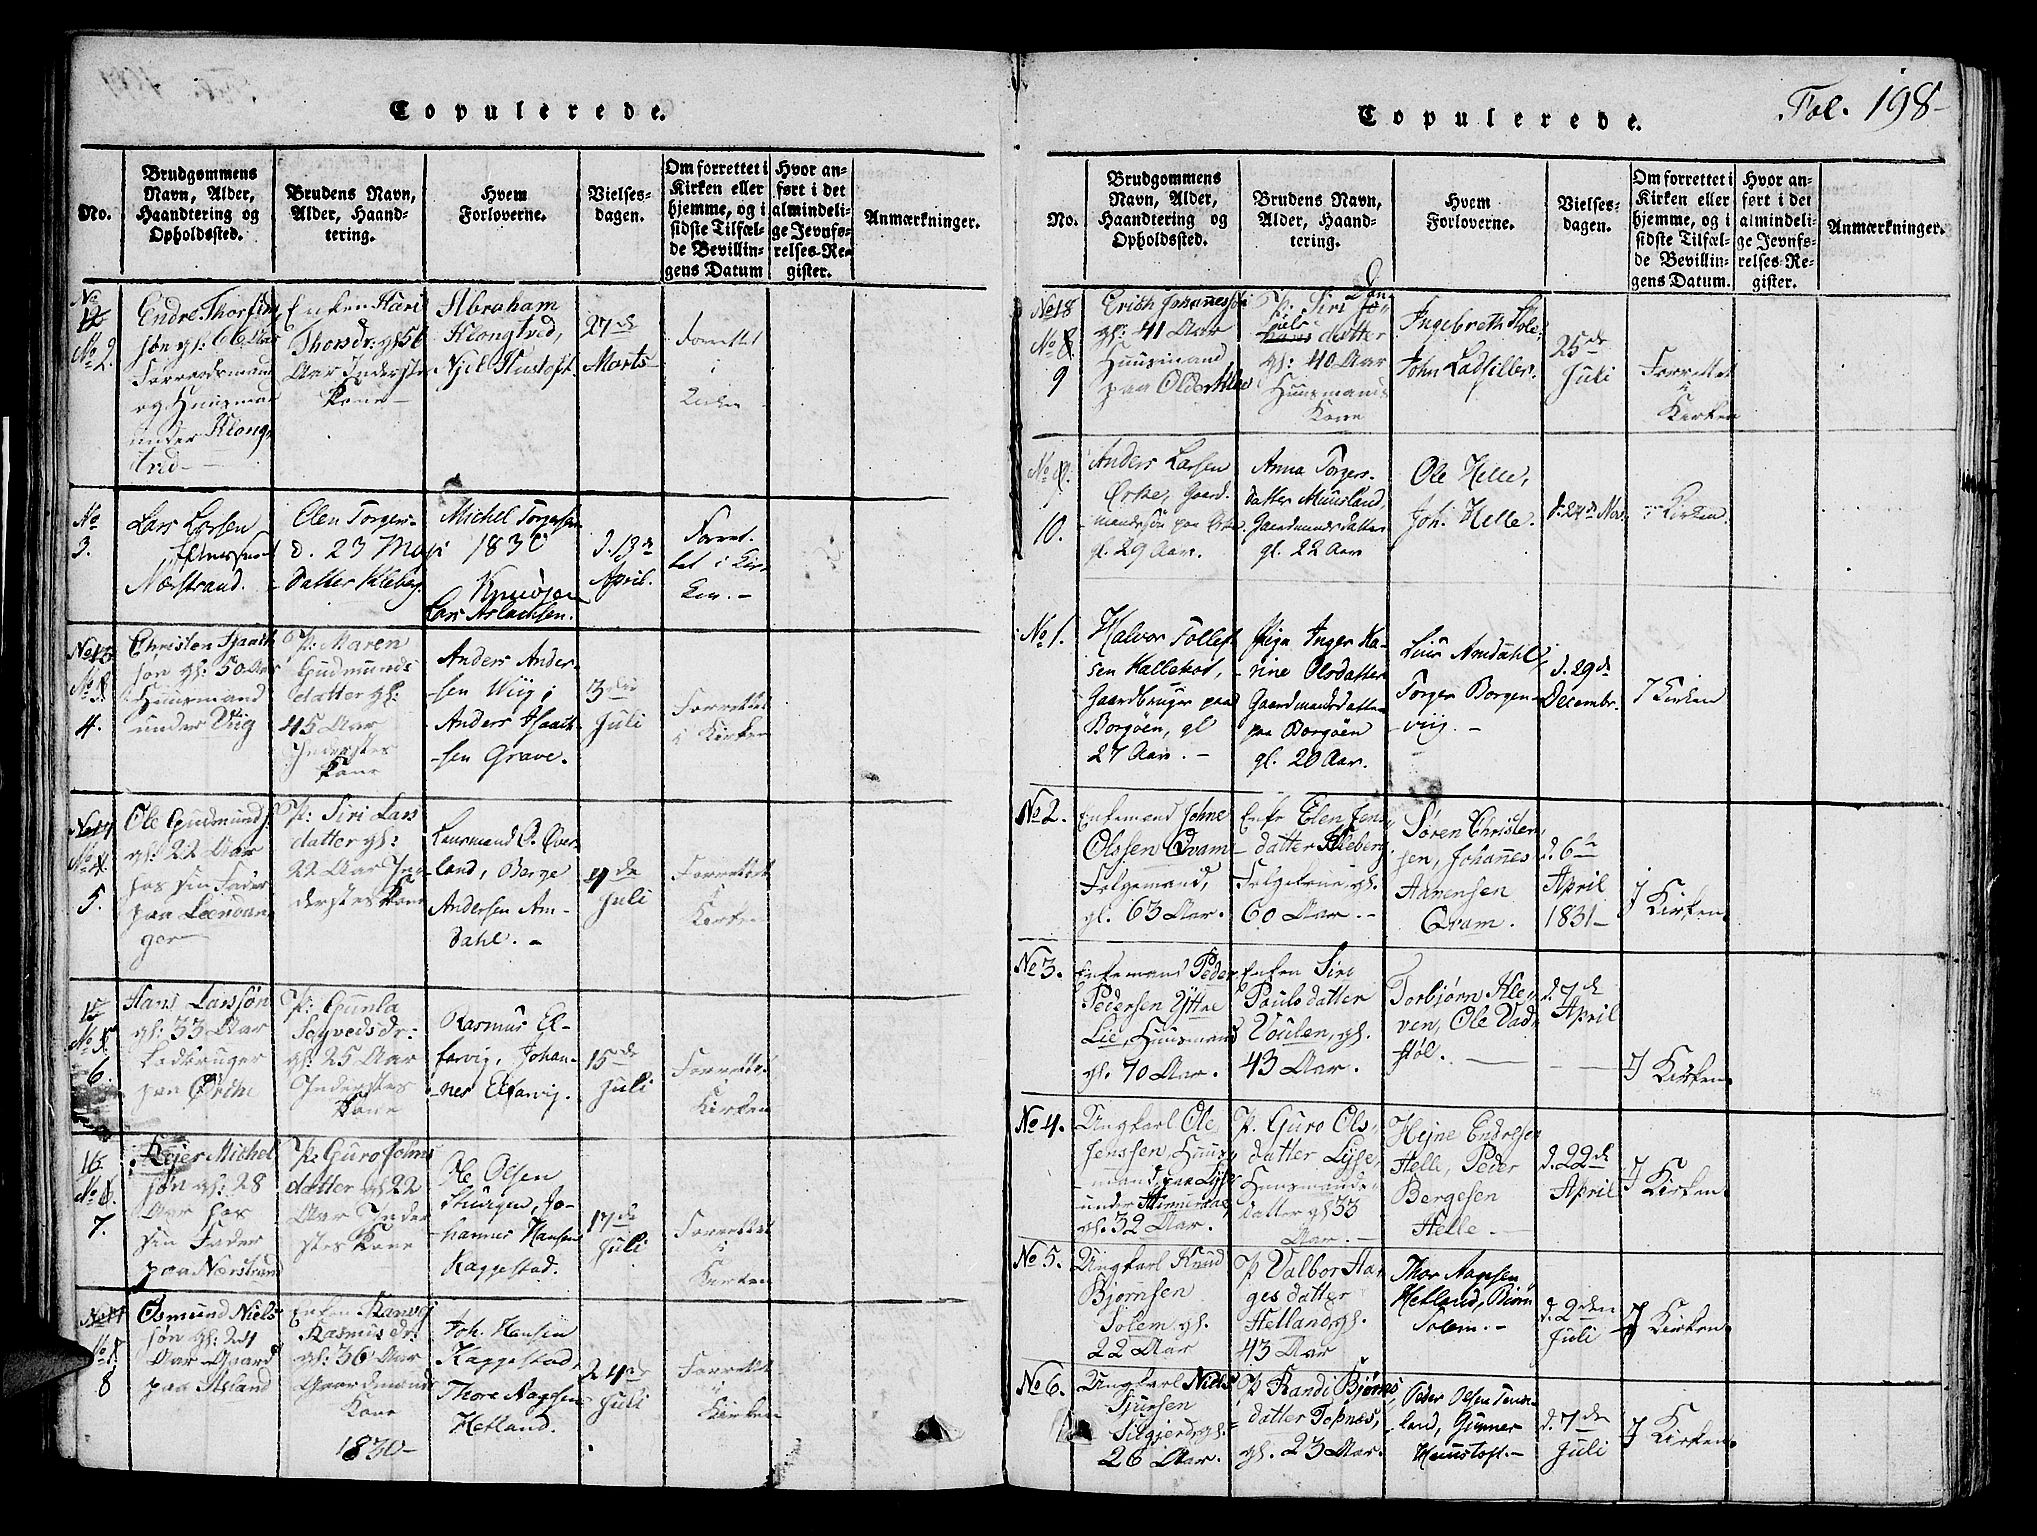 Copulerede.
No.
Brudgommens
Navn, Alder,
Haandtering og
Opholdssted.
Brudens Navn,
Alder, Haand-
tering.
Hvem
Forloverne.
Vielses-
dagen.
Om forrettet i
Kirken eller
hjemme, og i
sidste Tilfæl-
de Bevillin-
gens Datum
Hvor an-
ført i det
almindeli-
ge Jevnfø-
relses-Re-
gister.
Anmærkninger.
No
12
No 2.
Endre Thorsten
søn gl: 66 Aar
og Huusman
under Klong
tvid
Enken Kari
Thorsdr. gl: 56
Aar Inderste
Kone
Abraham
Klongtvid,
Njel Hustoft.
27de
Marts
i
No
3.
Lars Larsen
Næstrand.
Elen Torgers-
d. 23 May
datter Kleberg
Michel Torgesen
1830
Lars Aslachsen.
d. 13de
April.
Forret-
tet i Kir-
ken.
No 13
No 3.
4.
Christen Isaach
søn gl: 50 Aar
Huusmand
under Viig
P: Maren
Gudmunds
datter gl:
45 Aar
Inderstes
Kone
Anders Ander-
sen Wiig,
Anders Isaach-
sen Grave.
3die
Juli
Forrettet
i Kirken
No 14
No 4.
5.
Ole Gudmunds:
gl: 22 Aar
hos sin Fader
paa Leervan
ger
P: Siri Lars
datter gl:
22 Aar In-
derstes Kone
Lensmand O. Øver-
land, Børge
Andersen Am-
dahl.
4de
Juli
Forrettet
i
Kirken
15
No 5.
6.
Hans Larssøn
gl: 33 Aar
paa Ørke
P: Gunla
Sqvedsdr:
gl: 25 Aar
Inderstes
Kone
Rasmus El-
farvig, Johan-
nes Elfarvig.
15de
Juli
Forrettet
i
Kirken
16
No 6.
7.
Reier Michel
søn gl: 28
Aar hos
sin Fader
paa Nærstrand
P: Guro Johns
datter gl: 22
Aar Inder
stes Kone
Ole Olsen
Stuugen, Jo-
hannes Hansen
Kaggestad.
17de
Juli
Forrettet
i
Kirken
No 17
No 7.
8
Osmund Niels
søn gl: 24
Aar Gaard
paa Asland
Enken Ranvei
Rasmusdr:
gl: 36 Aar
Gaardmands
Kone
1830
Joh. Hansen
Kaggestad,
Thore Aagesen
Hetland.
24de
Juli
Forrettet
i
Kirken
Copulerede.
Fol. 198
No.
Brudgommens
Navn, Alder,
Haandtering og
Opholdssted.
Brudens Navn,
Alder, Haand-
tering.
Hvem
Forloverne.
Vielses-
dagen.
Om forrettet i
Kirken eller
hjemme, og i
sidste Tilfæl-
de Bevillin-
gens Datum.
Hvor an-
ført i det
almindeli-
ge Jevnfø-
relses-Re-
gister.
Anmærkninger.
No 18
No 8.
9
Erich Johannessøn
gl: 41 Aar
Huusmand
paa
P: Siri
datter
gl: 40 Aar
Huusmands
Kone
Ingebreth Hole,
John
25de
Juli
Forrettet
i
Kirken
No 9.
10.
Anders Larsen
Ørke, Gaard-
mandssøn paa Ørke
gl. 29 Aar
Anna Torgers-
datter Muusland,
Gaardmandsdatter
gl. 22 Aar
Ole Helle,
Joh. Helle.
d. 24de Nov.
i Kirken.
No 1.
Halvor Tollef-
sen Hallekot,
Gaardbruger paa
Borgøen, gl
27 Aar.
Pige Inger Ka-
rine Olsdatter
Gaardmandsdatter
paa Borgøen
gl. 20 Aar.
Siur Amdahl,
Torger Borgen-
viig.
d. 29de
Decembr.
I Kirken
No 2.
Enkemand Johne
Olssen Qvam
Følgemand,
gl. 63 Aar.
Enke Elen Jens-
datter Kleberg
Følgekone, gl.
60 Aar.
Søren Christen-
sen, Johanes
Aarensen
Qvam.
d. 6te
April
1831
I Kirken.
No 3.
Enkemand Peder
Pedersen Yttre
Lie, Huusmand
gl. 70 Aar.
Enken Siri
Paulsdatter
Voulen, gl.
43 Aar.
Torbjørn Kle-
ven, Ole Vad-
støl.
d. 7de
April
I Kirken.
No 4.
Ungkarl Ole
Jenssen, Huus-
mand paa Lyse
under
gl. 32 Aar.
P. Guro Ols-
datter Lyse,
Huusmands-
datter gl 33
Aar.
Hejne Endresen
Helle, Peder
Bergesen
Helle.
d. 22de
April
I Kirken.
No 5.
Ungkarl Knud
Bjørnsen
Solem gl.
22 Aar
P. Valbor Aa-
gesdatter
Hetland gl.
43 Aar
Thor Aagesen
Hetland, Biørn
Solem.
d. 2den
Juli
I Kirken.
No 6.
Ungkarl Niels
Sjursen
Silgjerd gl.
26 Aar.
P Randi Bjørns-
datter Topnæs,
gl. 23 Aar.
Peder Olsen
land, Gunner
Huustoft.
d. 7de
Juli
I Kirken.